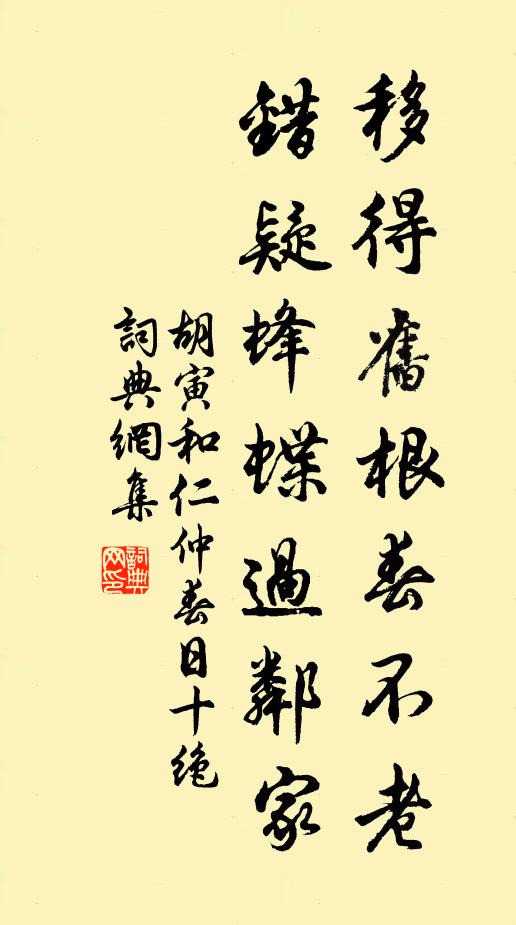 移得舊根春不老
錯疑蜂蝶過鄰家
胡寅和仁仲春日十绝
詞典網集
詞典
网印